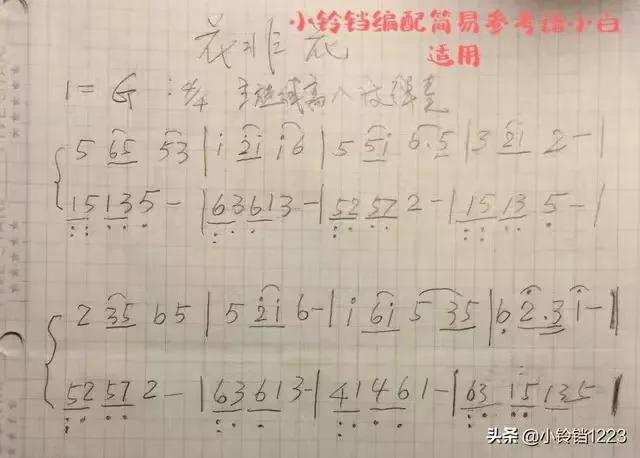 小铃铛编配简易参考谱小白
适用
花非花
1=G 4/4 主旋律高八度弹奏
5 65 53 | i 2i i6 | 5 5i 6.5 | 3 21 2 - |
15 13 5 - | 63 61 3 - | 52 57 2 - | 15 13 5 - |
2 35 65 | 5 2i 6 - | i 6i 5 35 | 6 2.3 1 - |
52 57 2 - | 63 61 3 - | 41 46 1 - | 63 15 135 |
头条 @小铃铛1223